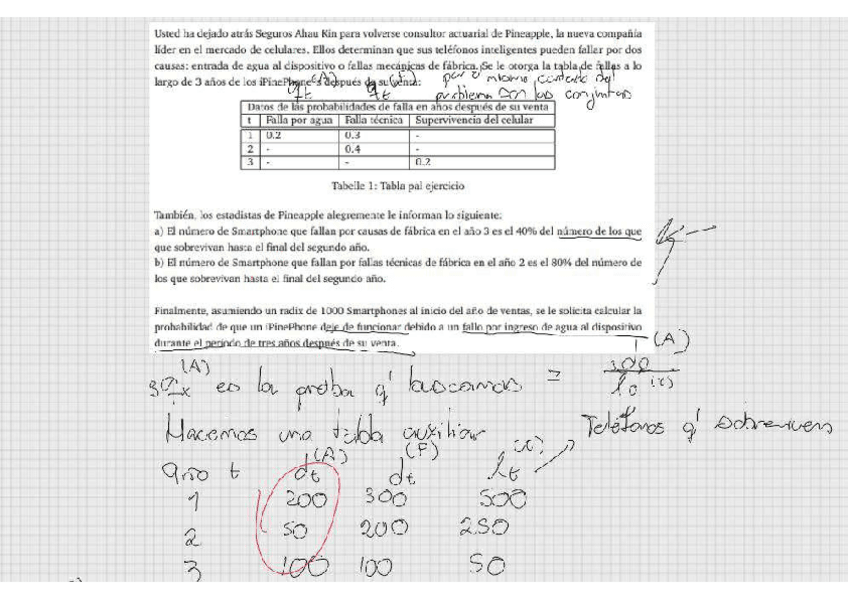 Usted ha dejado atrás Seguros Ahau Kin para volverse consultor actuarial de Pineapple, la nueva compañía
líder en el mercado de celulares. Ellos determinan que sus teléfonos inteligentes pueden fallar por dos
causas: entrada de agua al dispositivo o fallas mecánicas de fábrica. Se le otorga la tabla de fallas a lo
largo de 3 años de los iPinePhone's después de su venta:
(A) (F) por el mismo contexto del
qt qt problema son las conjuntas
Datos de las probabilidades de falla en años después de su venta
t Falla por agua Falla técnica Supervivencia del celular
1 0.2 0.3 -
2 - 0.4 -
3 - - 0.2
Tabelle 1: Tabla pal ejercicio
También, los estadistas de Pineapple alegremente le informan lo siguiente:
a) El número de Smartphone que fallan por causas de fábrica en el año 3 es el 40% del número de los que
que sobrevivan hasta el final del segundo año.
b) El número de Smartphone que fallan por fallas técnicas de fábrica en el año 2 es el 80% del número de
los que sobrevivan hasta el final del segundo año.
Finalmente, asumiendo un radix de 1000 Smartphones al inicio del año de ventas, se le solicita calcular la
probabilidad de que un iPinePhone deje de funcionar debido a un fallo por ingreso de agua al dispositivo
durante el periodo de tres años después de su venta.
3qx (A) es la proba q' buscamos =
Hacemos una tabla auxiliar
Teléfonos q' sobreviven
año t dt (A) dt (F) lt
1 200 300 500
2 50 200 250
3 100 100 50